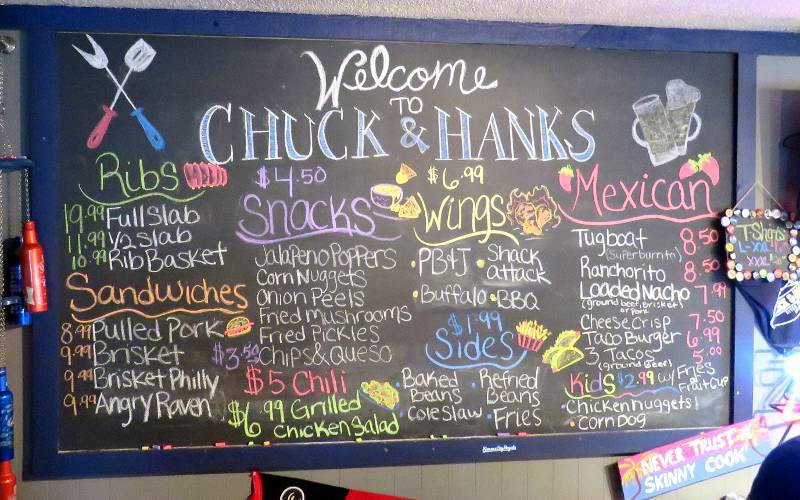 Welcome
TO
CHUCK & HANKS
Ribs
19.99 Full Slab
11.99 1/2 Slab
10.99 Rib Basket
Sandwiches
8.99 Pulled Pork
9.99 Brisket
9.99 Brisket Philly
9.99 Angry Raven
$4.50
Snacks
Jalapeno Poppers
Corn Nuggets
Onion Peels
Fried Mushrooms
Fried Pickles
$3.50 Chips & Queso
$5 Chili
$6.99 Grilled
Chicken Salad
$6.99
Wings
• PB&J • Shack
attack
• Buffalo • BBQ
$1.99
Sides
• Baked
Beans
• Cole Slaw
• Refried
Beans
• Fries
Mexican
Tugboat 8.50
(Superburrito)
Ranchorito 8.50
Loaded Nacho 7.99
(ground beef, Brisket
or Pork)
Cheese Crisp 7.50
Taco Burger 6.99
3 Tacos 5.00
(Ground Beef)
Kids $2.99 w/ Fries
Fruit Cup
• Chicken nuggets
• Corn Dog
T-Shirts
NEVER TRUST A
SKINNY COOK